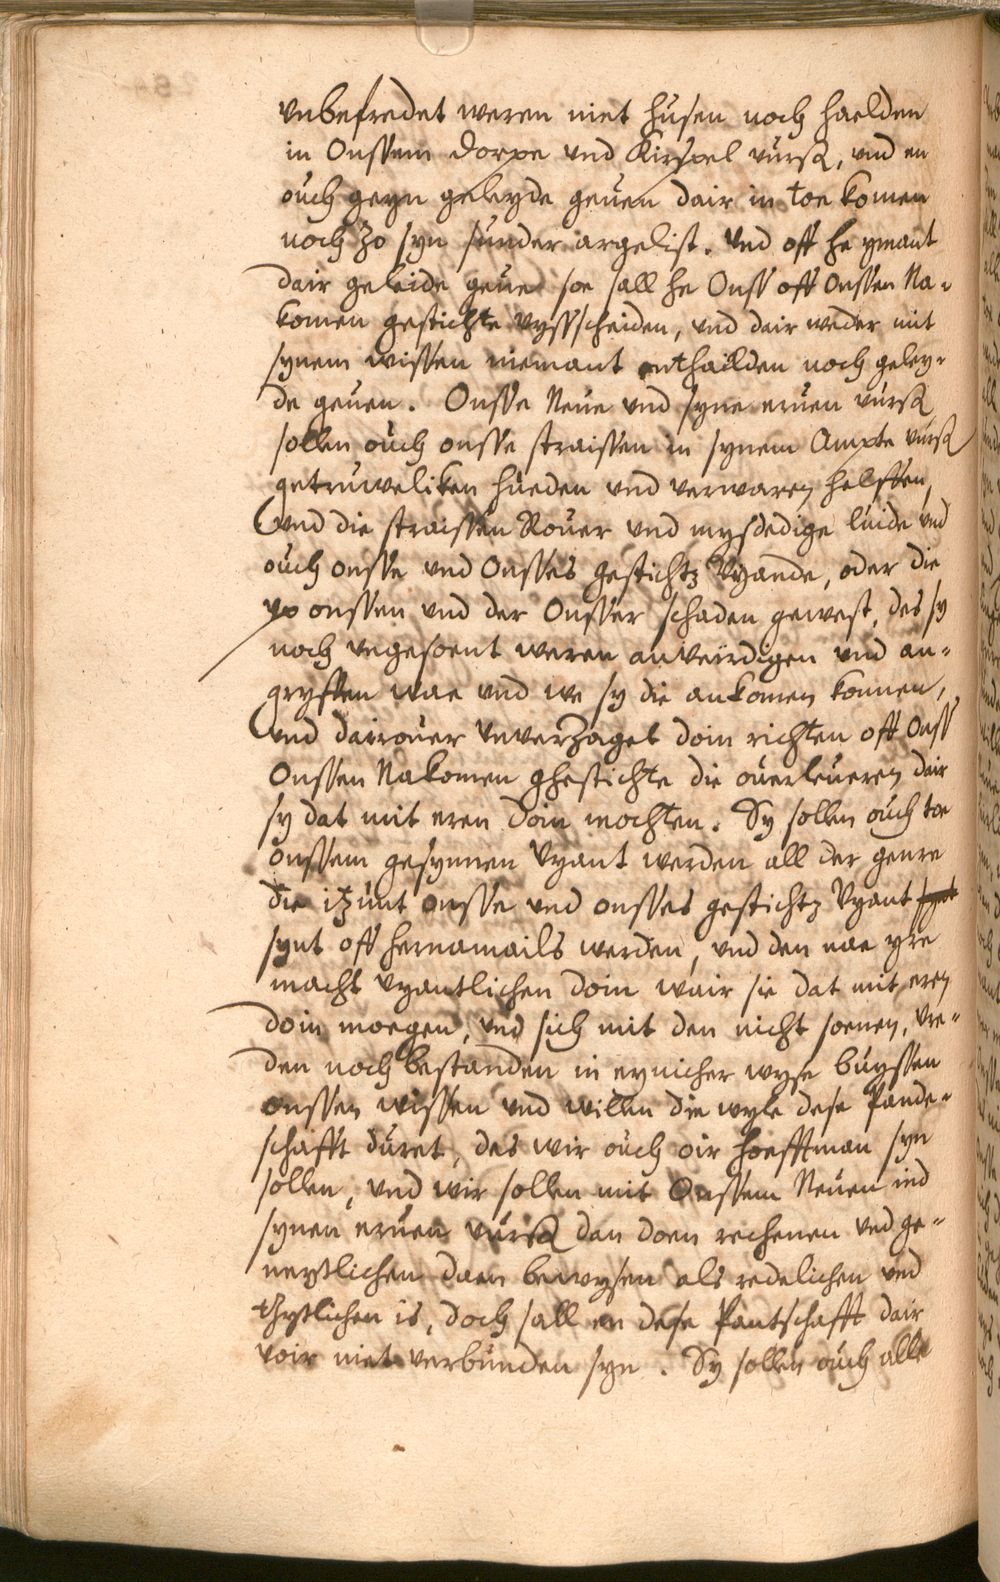 vnbefredet weren niet husen noch haelden
in Onssem Dorpe vnd Kirspel vursz, vnd en
ouch geyn geleyde geuen dair in toe komen
noch zo syn sunder argelist. Vnd off he ymant
dair geleide geue soe sall he Onss off Onssen Na-
komen gestichte vyssscheiden, vnd dair weder mit
synem wissen niemant enthailden noch geley-
de geuen. Onsse Neue vnd syne eruen vursz
sollen ouch onsse straissen in synem Ampte vursz
getruweliken hueden vnd verwaren helffen,
vnd die straissen Rouer vnd mysdedige luide vnd
ouch onsse vnd Onsses gestichtz Vyande, oder die
vp onssen vnd der Onsser schaden gewest, des sy
noch vngesoent weren anveirdigen vnd an-
gryffen wae vnd we sy die ankomen konnen,
vnd dairouer vnverzaget doin richten off Onss
Onssen Nakomen ghestichte die ouerleueren dair
sy dat mit eren doin mochten. Sy sollen ouch toe
onssem gesynnen Vyant werden all der genre
die itzunt onsse vnd onsses gestichtz Vyant
synt off hernamails werden, vnd den nae yre
macht vyantlichen doin wair sie dat mit eren
doin moegen, vnd sich mit den nicht soenen, vre-
den noch bestanden in eynicher wyse buyssen
onssen wissen vnd willen die wyle dese Pande-
schafft duret, des wir ouch oir hoefftman syn
sollen, vnd wir sollen mit Onssem Neuen ind
synen eruen vursz dan doen rechenen vnd ge-
neytlichen daen bewysen als redelichen vnd
thytlichen is, doch sall en dese Pantschafft dair
voir niet verbunden syn. Sy sollen ouch alle